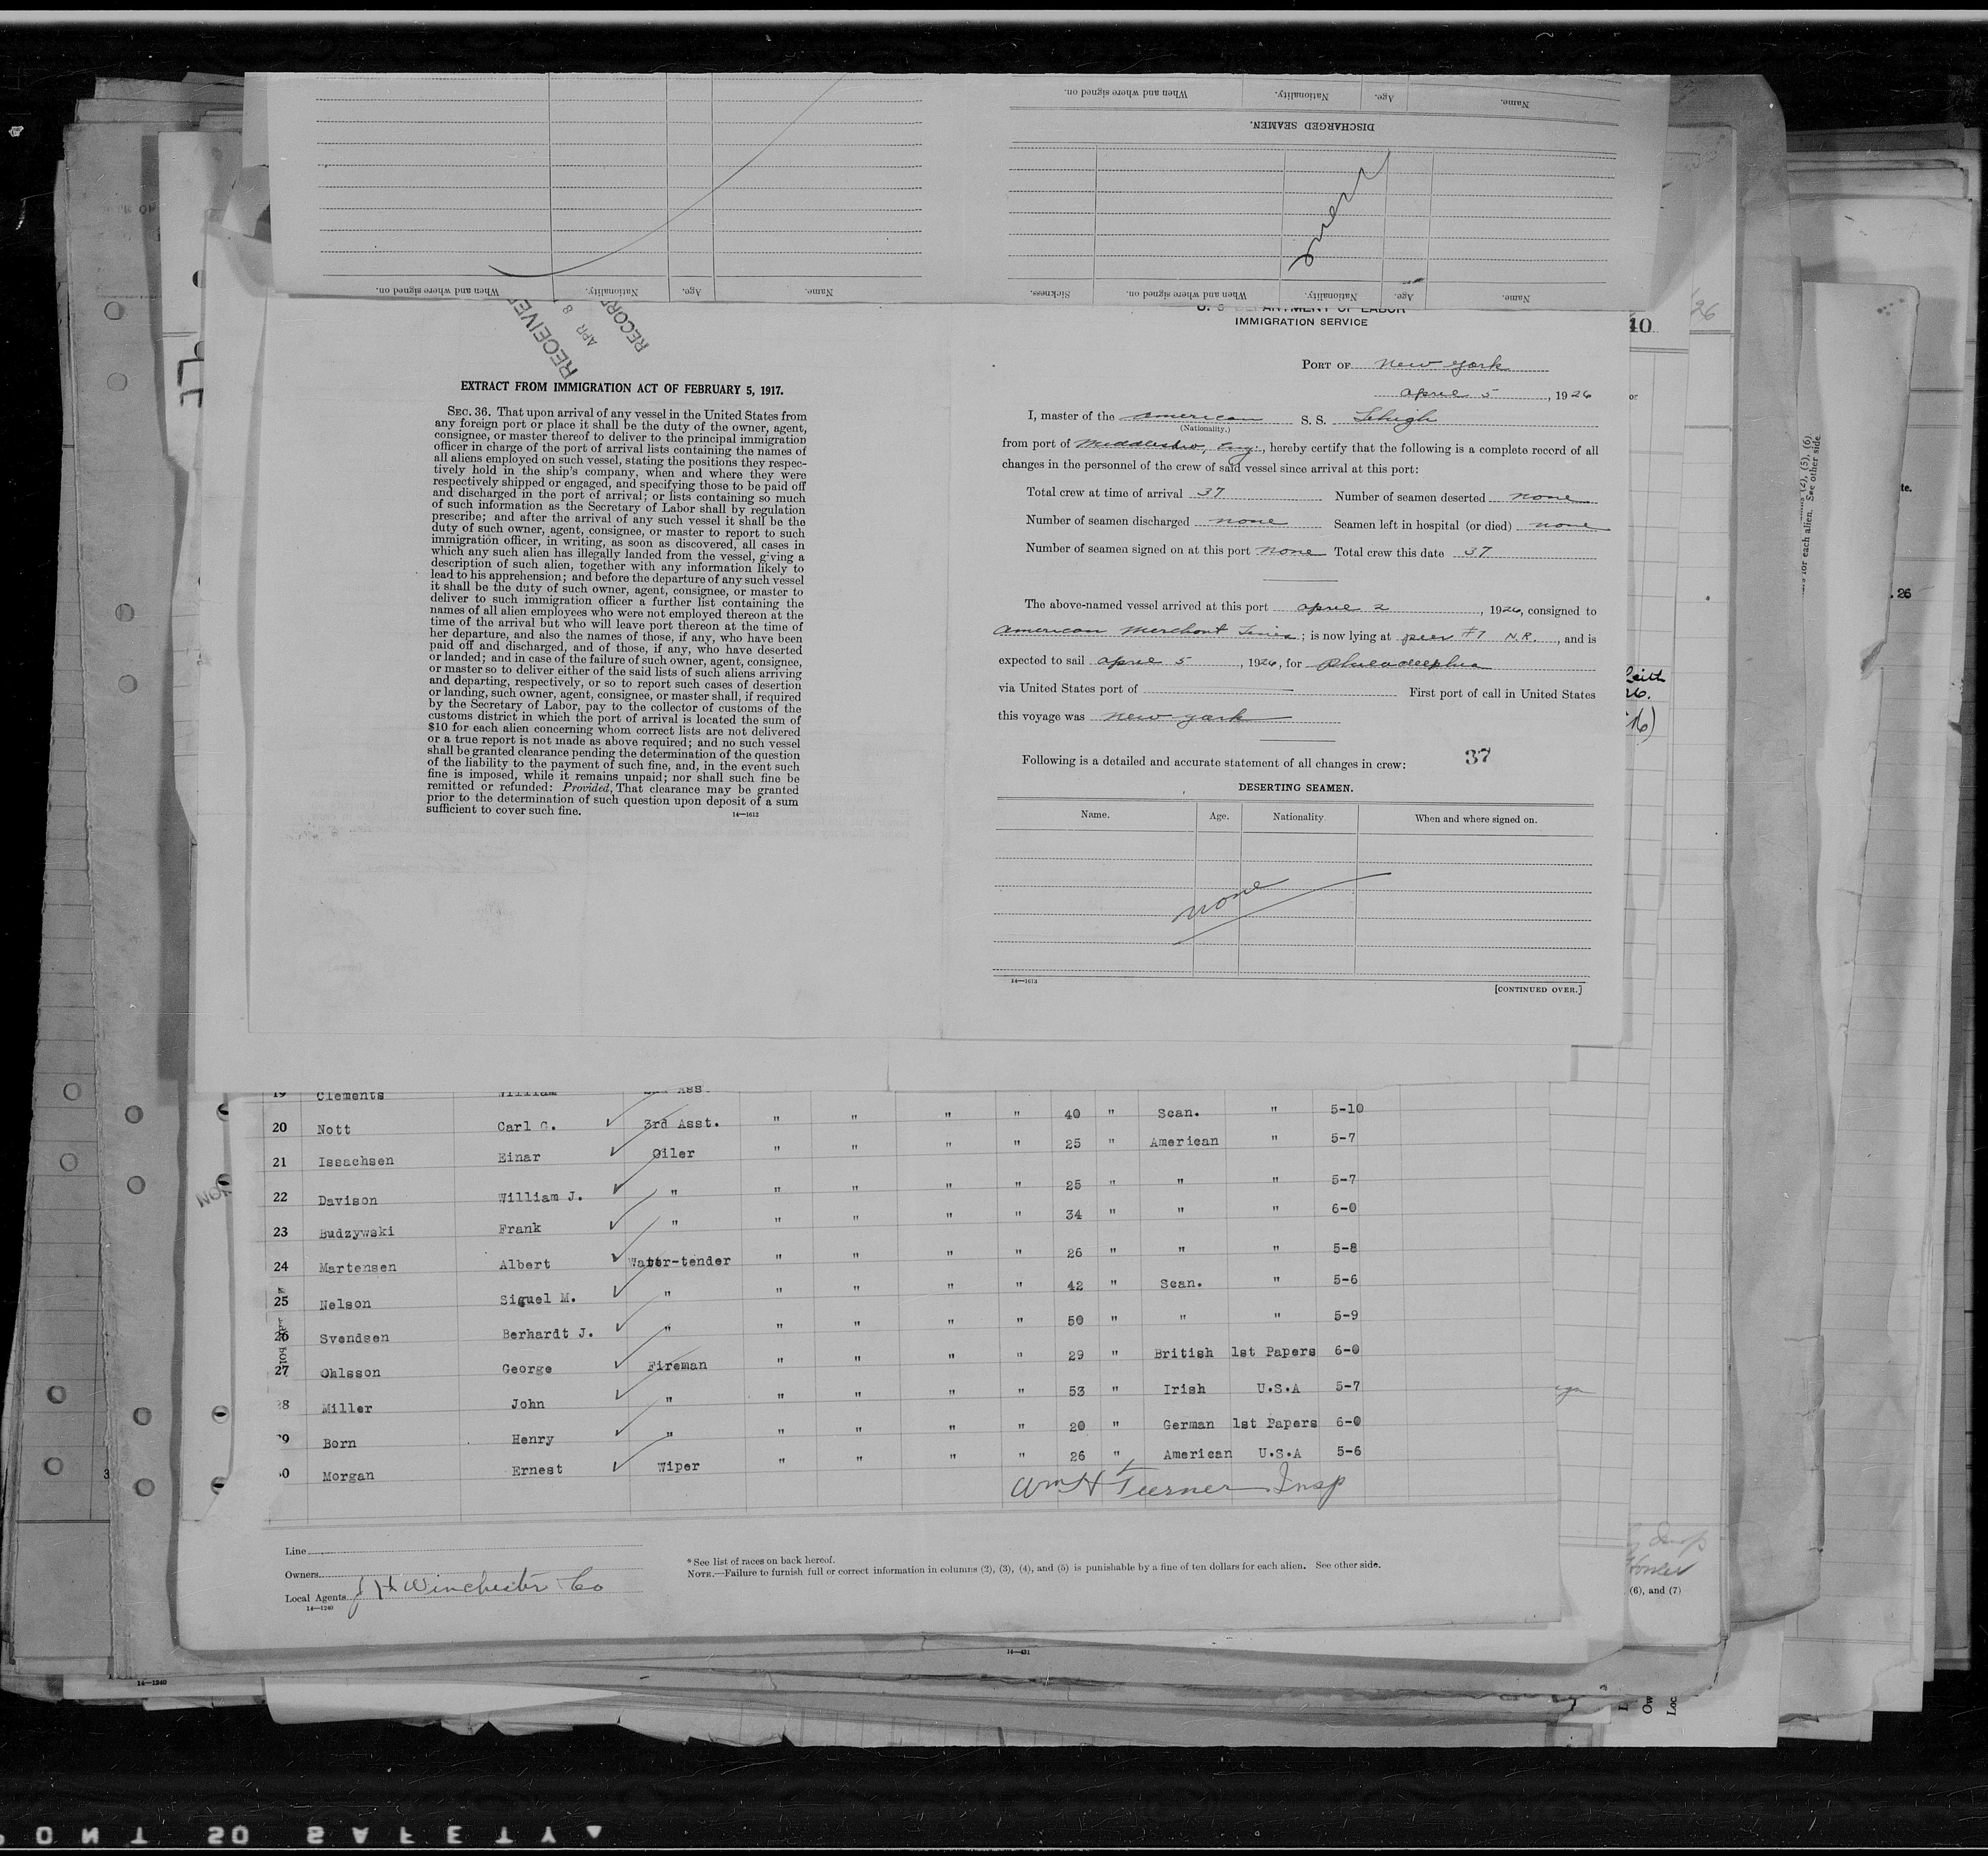 When and where signed on.
Nationality.
Age.
Name.
DISCHARGED SEAMEN.
When and where signed on.
Nationality.
Age.
Name.
Sickness.
When and where signed on.
Nationality.
Age.
Name.
RECEIVE
APR 8
RECOR
EXTRACT FROM IMMIGRATION ACT OF FEBRUARY 5, 1917.
SEC. 36. That upon arrival of any vessel in the United States from
any foreign port or place it shall be the duty of the owner, agent,
consignee, or master thereof to deliver to the principal immigration
officer in charge of the port of arrival lists containing the names of
all aliens employed on such vessel, stating the positions they respec-
tively hold in the ship's company, when and where they were
respectively shipped or engaged, and specifying those to be paid off
and discharged in the port of arrival; or lists containing so much
of such information as the Secretary of Labor shall by regulation
prescribe; and after the arrival of any such vessel it shall be the
duty of such owner, agent, consignee, or master to report to such
immigration officer, in writing, as soon as discovered, all cases in
which any such alien has illegally landed from the vessel, giving a
description of such alien, together with any information likely to
lead to his apprehension; and before the departure of any such vessel
it shall be the duty of such owner, agent, consignee, or master to
deliver to such immigration officer a further list containing the
names of all alien employees who were not employed thereon at the
time of the arrival but who will leave port thereon at the time of
her departure, and also the names of those, if any, who have been
paid off and discharged, and of those, if any, who have deserted
or landed; and in case of the failure of such owner, agent, consignee,
or master so to deliver either of the said lists of such aliens arriving
and departing, respectively, or so to report such cases of desertion
or landing, such owner, agent, consignee, or master shall, if required
by the Secretary of Labor, pay to the collector of customs of the
customs district in which the port of arrival is located the sum of
$10 for each alien concerning whom correct lists are not delivered
or a true report is not made as above required; and no such vessel
shall be granted clearance pending the determination of the question
of the liability to the payment of such fine, and, in the event such
fine is imposed, while it remains unpaid; nor shall such fine be
remitted or refunded: Provided, That clearance may be granted
prior to the determination of such question upon deposit of a sum
sufficient to cover such fine.
14—1613
U. S. DEPARTMENT OF LABOR
IMMIGRATION SERVICE
PORT OF New York
April 5, 1926
I, master of the American S. S. Lehigh
(Nationality.)
from port of Middlesbro, Eng., hereby certify that the following is a complete record of all
changes in the personnel of the crew of said vessel since arrival at this port:
Total crew at time of arrival 37 Number of seamen deserted none
Number of seamen discharged none Seamen left in hospital (or died) none
Number of seamen signed on at this port none Total crew this date 37
The above-named vessel arrived at this port April 2, 1926, consigned to
American Merchant Lines; is now lying at pier #7 N.R., and is
expected to sail April 5, 1926, for Philadelphia
via United States port of First port of call in United States
this voyage was New York
Following is a detailed and accurate statement of all changes in crew: 37
DESERTING SEAMEN.
Name. Age. Nationality When and where signed on.
none
14—1613
[CONTINUED OVER.]
19 Clements William Ass.
20 Nott Carl G. 3rd Asst. " " " " 40 " Scan. " 5-10
21 Issachsen Einar Oiler " " " " 25 " American " 5-7
22 Davison William J. " " " " " 25 " " " 5-7
23 Budzywski Frank " " " " " 34 " " " 6-0
24 Martensen Albert Water-tender " " " " 26 " " " 5-8
25 Nelson Siguel M. " " " " " 42 " Scan. " 5-6
26 Svendsen Berhardt J. " " " " " 50 " " " 5-9
27 Ohlsson George Fireman " " " " 29 " British 1st Papers 6-0
28 Miller John " " " " " 53 " Irish U.S.A 5-7
29 Born Henry " " " " " 20 " German 1st Papers 6-0
30 Morgan Ernest Wiper " " " " 26 " American U.S.A 5-6
Wm H Turner Insp
Line
Owners
Local Agents J H Winchester Co
14—1240
* See list of races on back hereof.
NOTE.—Failure to furnish full or correct information in columns (2), (3), (4), and (5) is punishable by a fine of ten dollars for each alien. See other side.
40
26
or
for each alien. See other side
(2), (5), (6)
te.
. 26
Leith
26.
(6), and (7)
14—1240
Ow
Loc
SAFETY